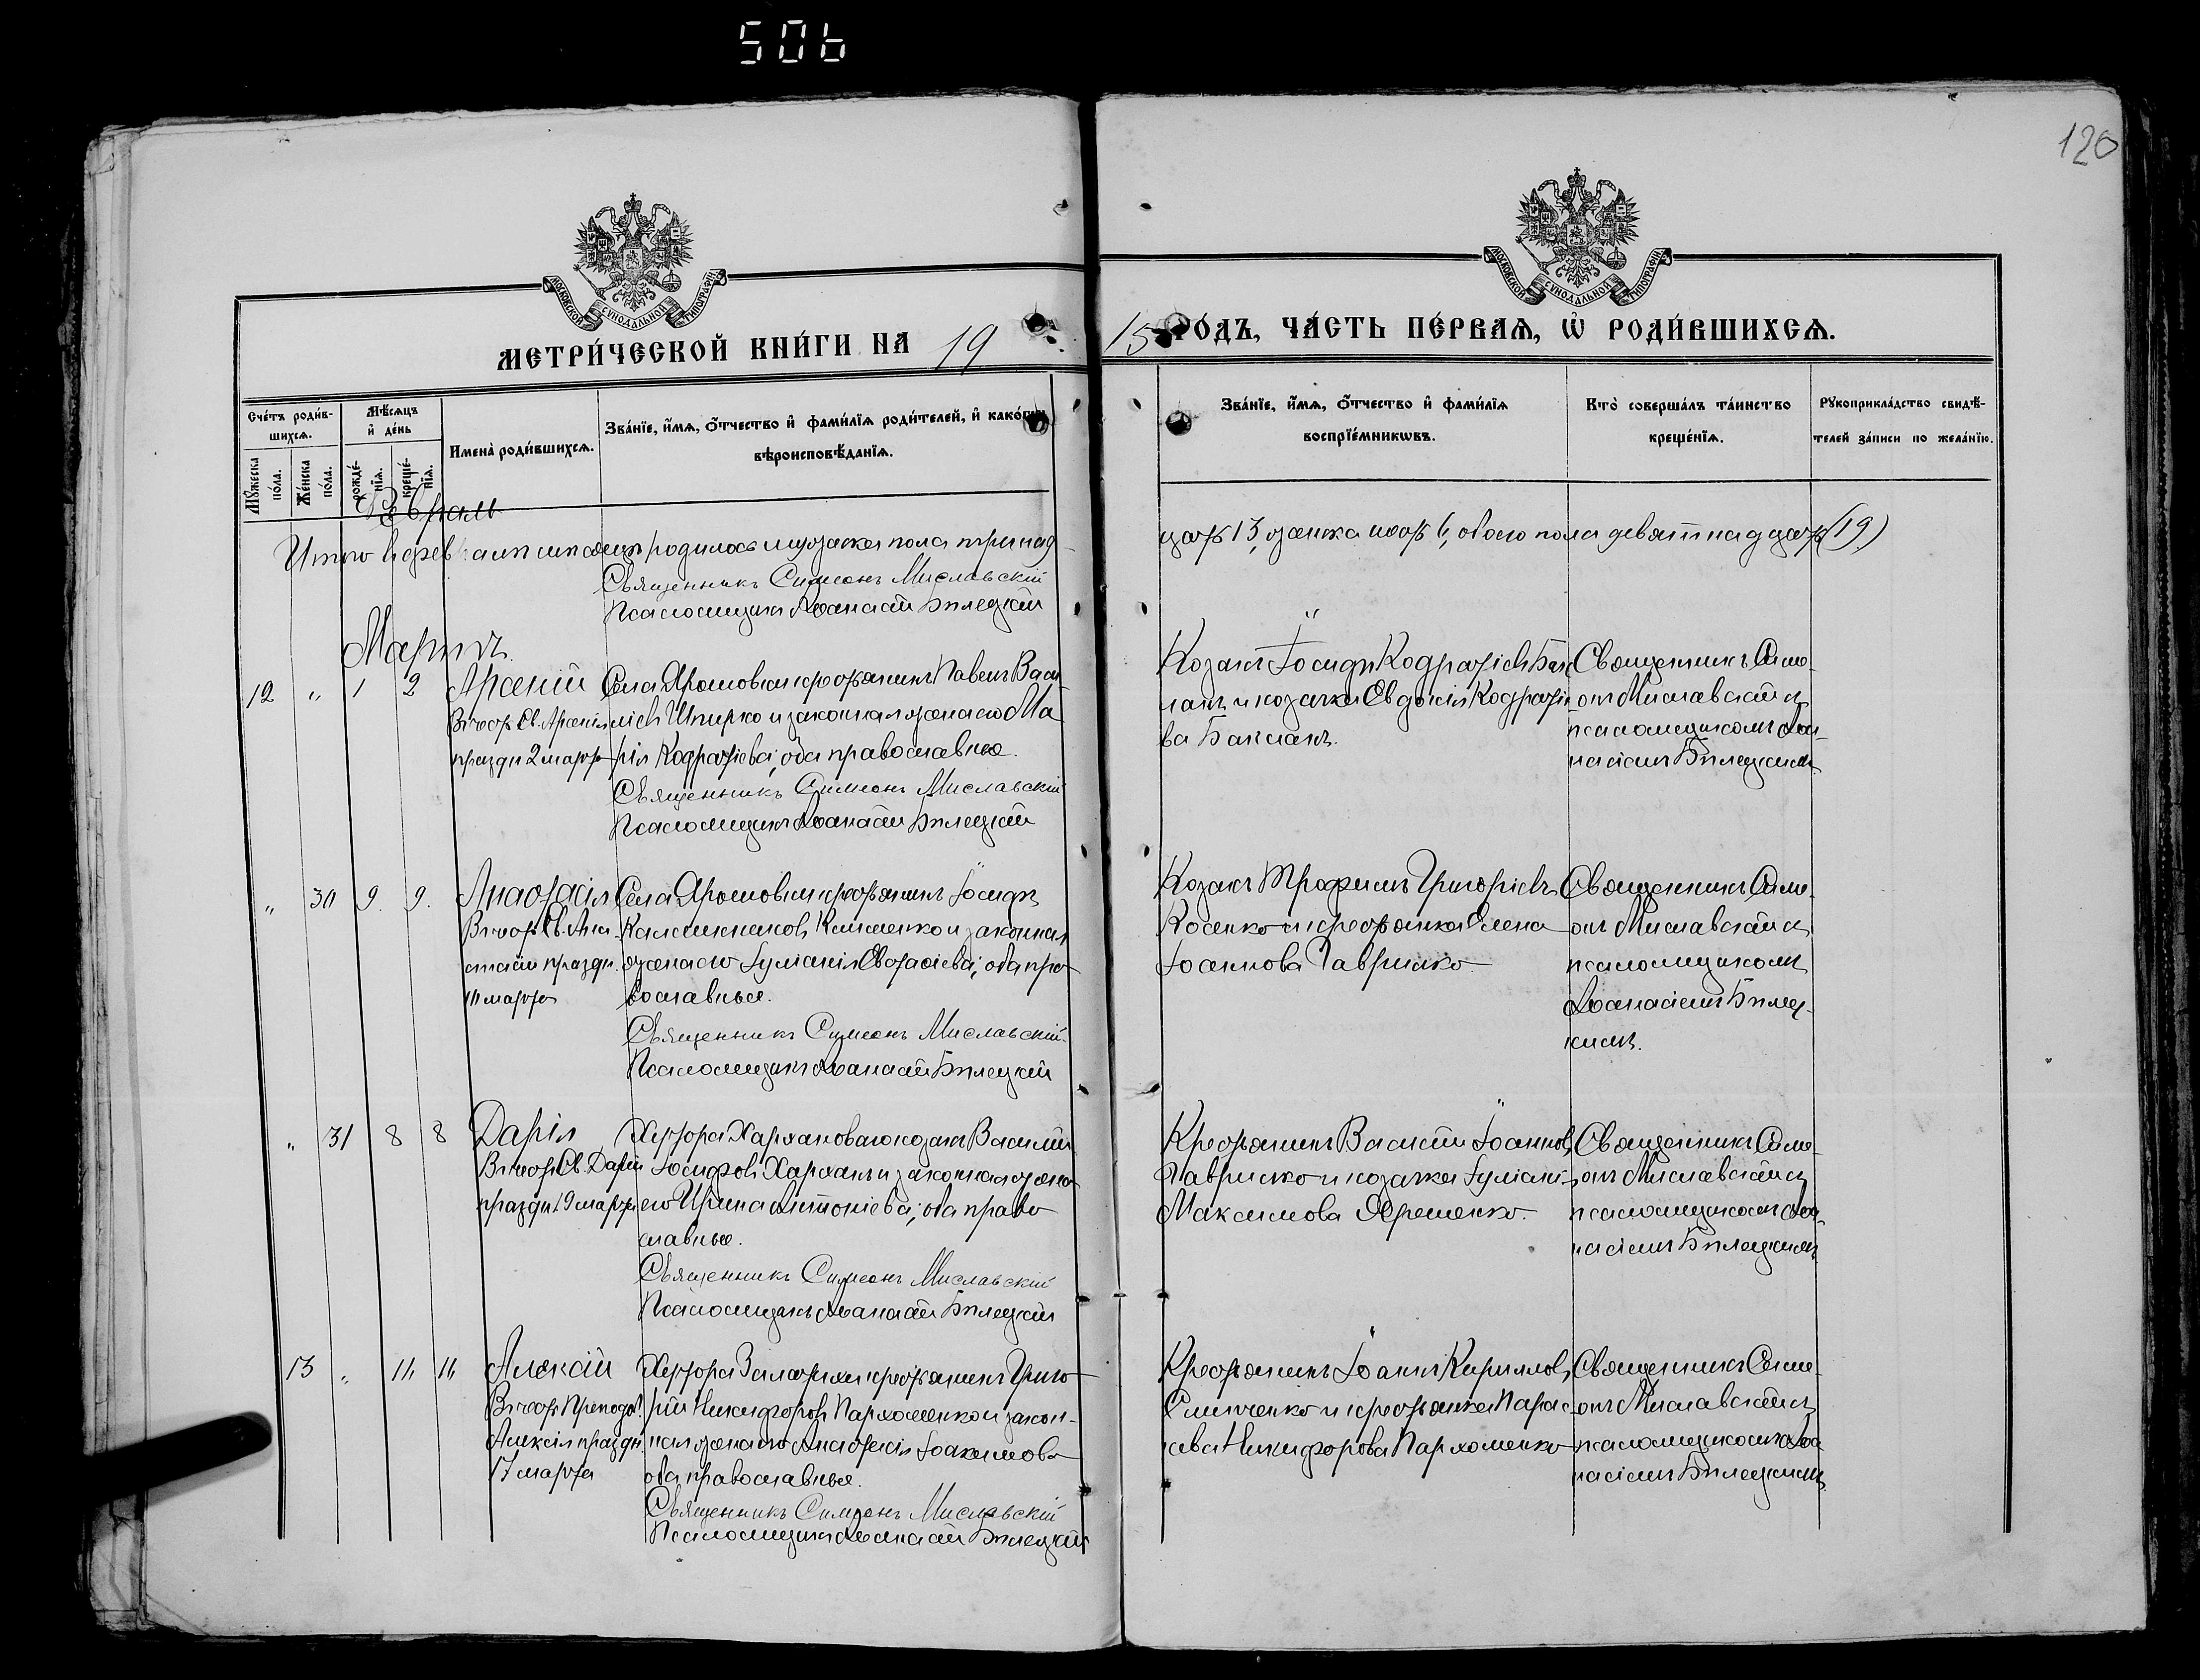 506
120
МОСКОВСКОЙ СѴНОДАЛЬНОЙ ТИПОГРАФІИ
МОСКОВСКОЙ СѴНОДАЛЬНОЙ ТИПОГРАФІИ
МЕТРИ́ЧЕСКОЙ КНИ́ГИ НА 19
15 ГО́ДЪ, ЧА́СТЬ ПЕ́РВАѦ, Ѡ҆ РОДИ́ВШИХСѦ.
Сче́тъ роди́в-
шихсѧ.
Мꙋ́жеска по́ла.
Же́нска по́ла.
Мѣ́сѧцъ
и҆ де́нь
рожде́-
нїѧ.
креще́-
нїѧ.
Имена̀ роди́вшихсѧ.
Зва́нїе, и҆́мѧ, ѻ҆́тчество и҆ фами́лїѧ роди́телей, и҆ како́гѡ
вѣроисповѣ́данїѧ.
Зва́нїе, и҆́мѧ, ѻ҆́тчество и҆ фами́лїѧ
воспрїе́мникѡвъ.
Кто̀ соверша́лъ та́инство
креще́нїѧ.
Рꙋкоприкла́дство свидѣ́-
телей за́писи по жела́нїю.
Февраль
Итого в феврале мѣсяцѣ родилось мужеска пола тринад-
цать 13, женска шесть 6, обоего пола девятнадцать (19)
Священникъ Симеонъ Миславскій
Псаломщикъ Аѳанасій Билецкій
Мартъ.
12 " 1 2
Арсеній
Въ честь Св. Арсенія
праздн 2 марта
Села Ярошовки крестьянинъ Павелъ Васи-
ліевъ Шпирко и законная жена его Ма-
рія Кодратіева, оба православные.
Священникъ Симеонъ Миславскій
Псаломщикъ Аѳанасій Билецкій
Козакъ Іосифъ Кодратіевъ Бак
лакъ и козачка Евдокія Кодратіе-
ва Баклакъ.
Священникъ Симе-
онъ Миславскій съ
псаломщикомъ Аѳа-
насіемъ Билецкимъ
" 30 9. 9.
Анастасія
Въ честь Св. Ана-
стасіи праздн.
10 марта
Села Ярошовки крестьянинъ Іосифъ
Каллиниковъ Клименко и законная
жена его Іуліанія Евстафіева, оба пра-
вославные.
Священникъ Симеонъ Миславскій
Псаломщикъ Аѳанасій Билецкій
Козакъ Трофимъ Григоріевъ
Косенко и крестьянка Елена
Іоаннова Гавришко
Священникъ Симе-
онъ Миславскій съ
псаломщикомъ
Аѳанасіемъ Билец-
кимъ.
" 31 8 8
Дарія
Въ честь Св. Даріи
праздн. 19 марта
Хутора Харханова козакъ Василій
Іосифовъ Харханъ и законная жена
его Ирина Антоніева, оба право
славные.
Священникъ Симеонъ Миславскій
Псаломщикъ Аѳанасій Билецкій
Крестьянинъ Василій Іоанновъ
Гавришко и козачка Іуліанія
Максимова Яременко.
Священникъ Симе-
онъ Миславскій съ
псаломщикомъ Аѳа-
насіемъ Билецкимъ
13 " 11 11
Алексій
Въ честь Преподоб.
Алексія праздн.
17 марта
Хутора крестьянинъ Григо
рій Никифоровъ Пархоменко и закон-
ная жена его Анастасія Іоакимова
оба православные.
Священникъ Симеонъ Миславскій
Псаломщикъ Аѳанасій Билецкій
Крестьянинъ Іоаннъ Кирилловъ
и крестьянка Парас-
кева Никифорова Пархоменко
Священникъ Симе-
онъ Миславскій съ
псаломщикомъ Аѳа
насіемъ Билецкимъ